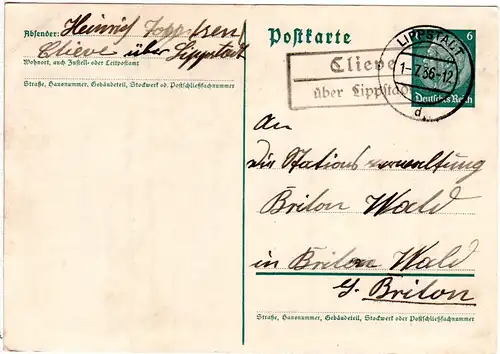 Absender: Heinrich
Clieve über Lippstadt
Wohnort, auch Zustell- oder Leitpostamt
Straße, Hausnummer, Gebäudeteil, Stockwerk od. Postschließfachnummer
Postkarte
LIPPSTADT
1-7.36-12
d
6
Deutsches Reich
Clieve
über Lippstadt
An
Die Stationsverwaltung
Brilon Wald
in Brilon Wald
Brilon
Straße, Hausnummer, Gebäudeteil, Stockwerk oder Postschließfachnummer